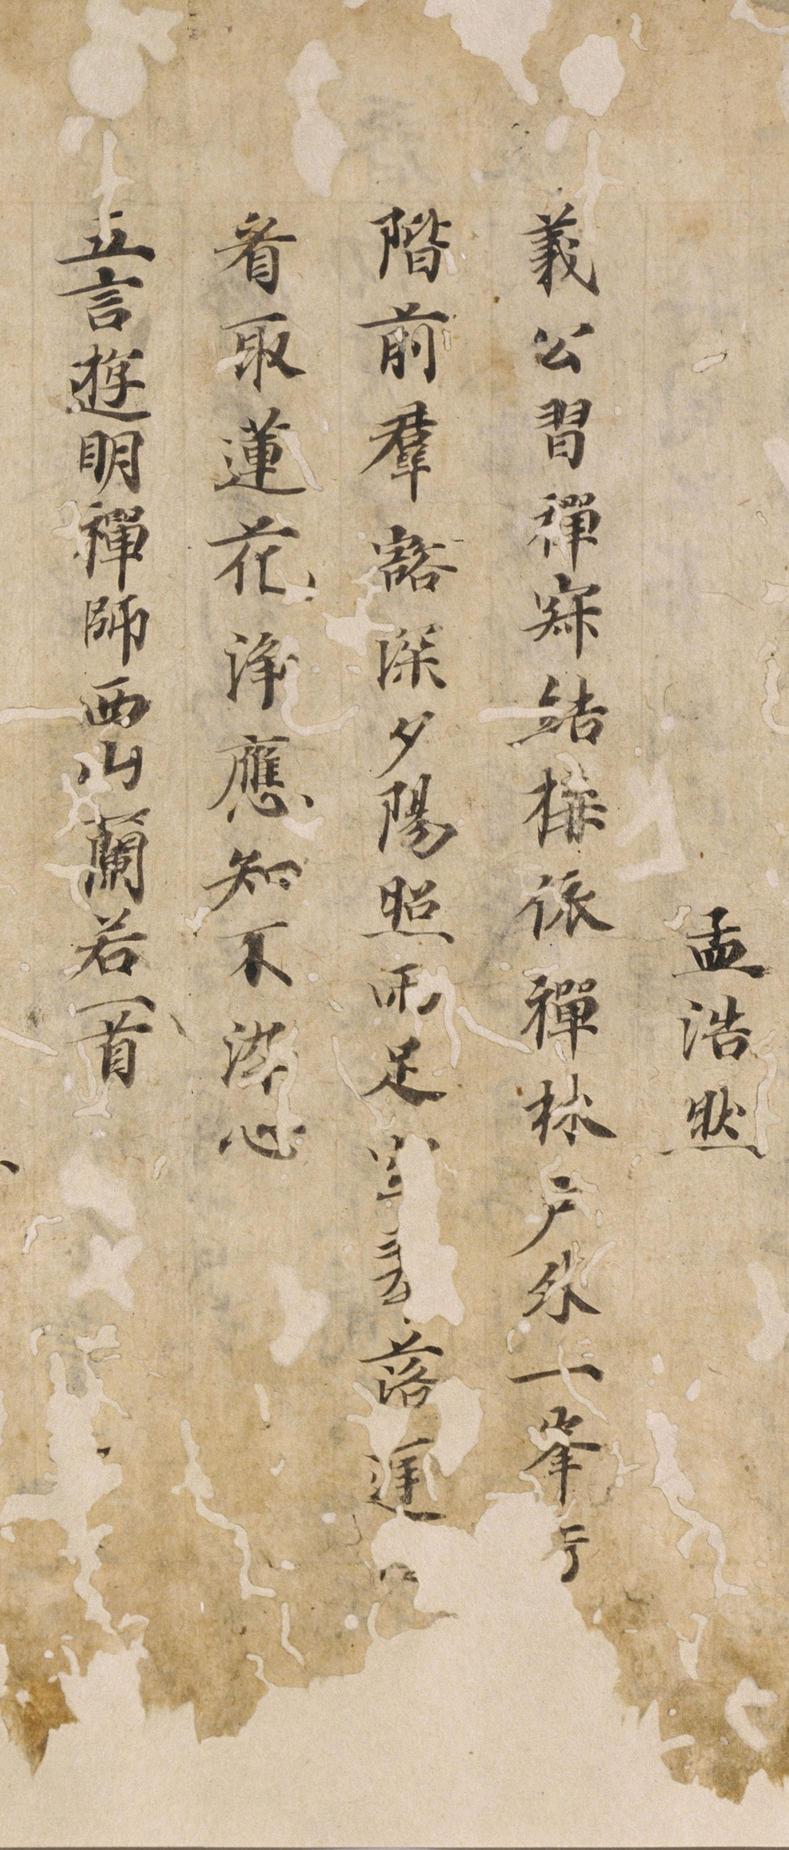 孟浩然
義公習禪寂結構依禪林戶外一峯
階前羣豁深夕陽照雨足空落
看取蓮花淨應知不染心
五言遊明禪師西山蘭若一首